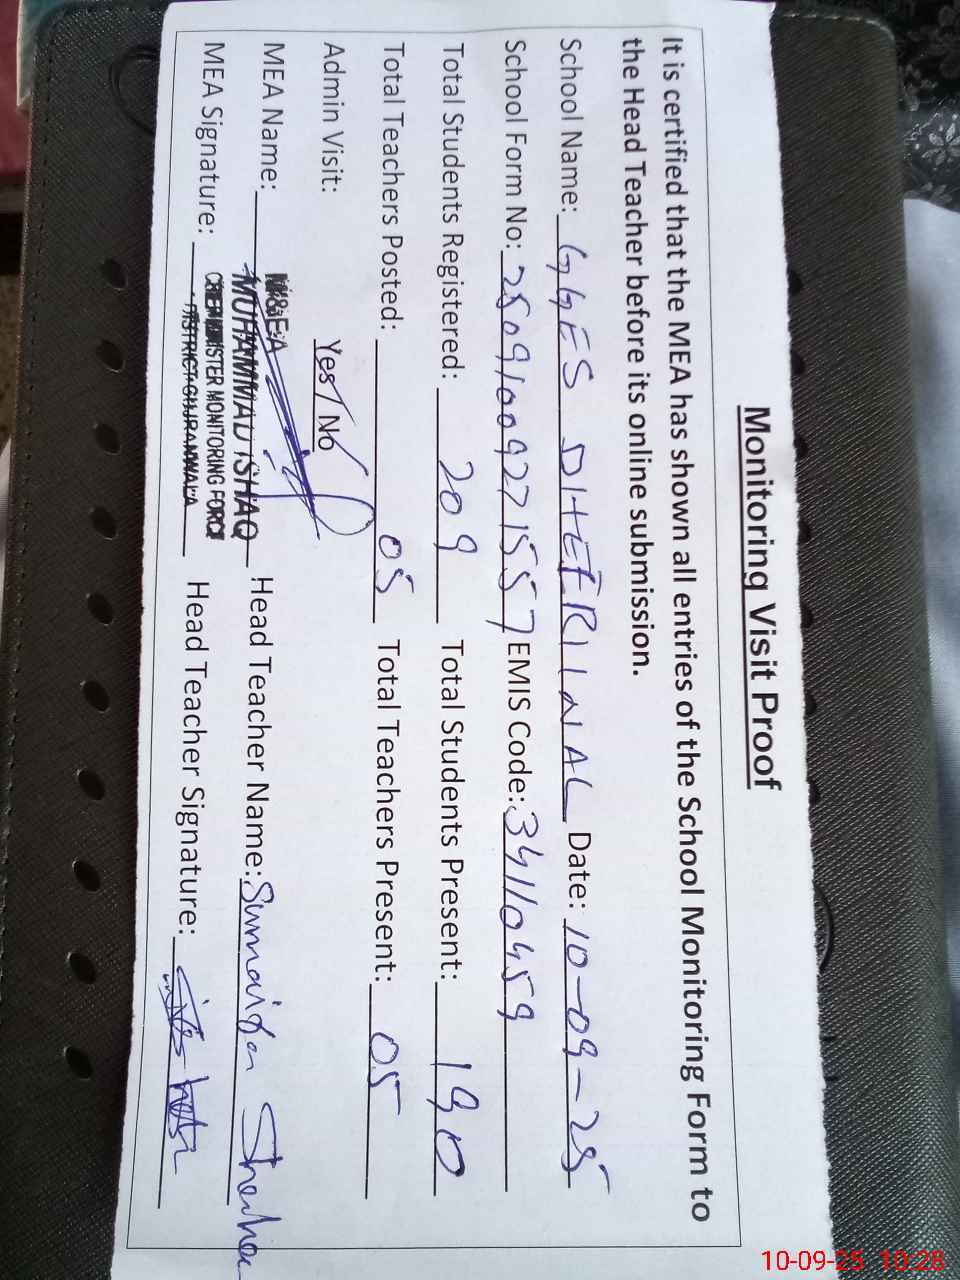 Monitoring Visit Proof
It is certified that the MEA has shown all entries of the School Monitoring Form to
the Head Teacher before its online submission.
School Name: GGES DHERI WAL Date: 10-09-25
School Form No: 25091009271557 EMIS Code: 34110459
Total Students Registered: 209 Total Students Present: 190
Total Teachers Posted: 05 Total Teachers Present: 05
Admin Visit: Yes / No
MEA Name: MUHAMMAD ISHAQ Head Teacher Name: Sumaira
MEA Signature: Head Teacher Signature:
M&EA
CHIEF MINISTER MONITORING FORCE
DISTRICT GUJRANWALA
10-09-25 10:28